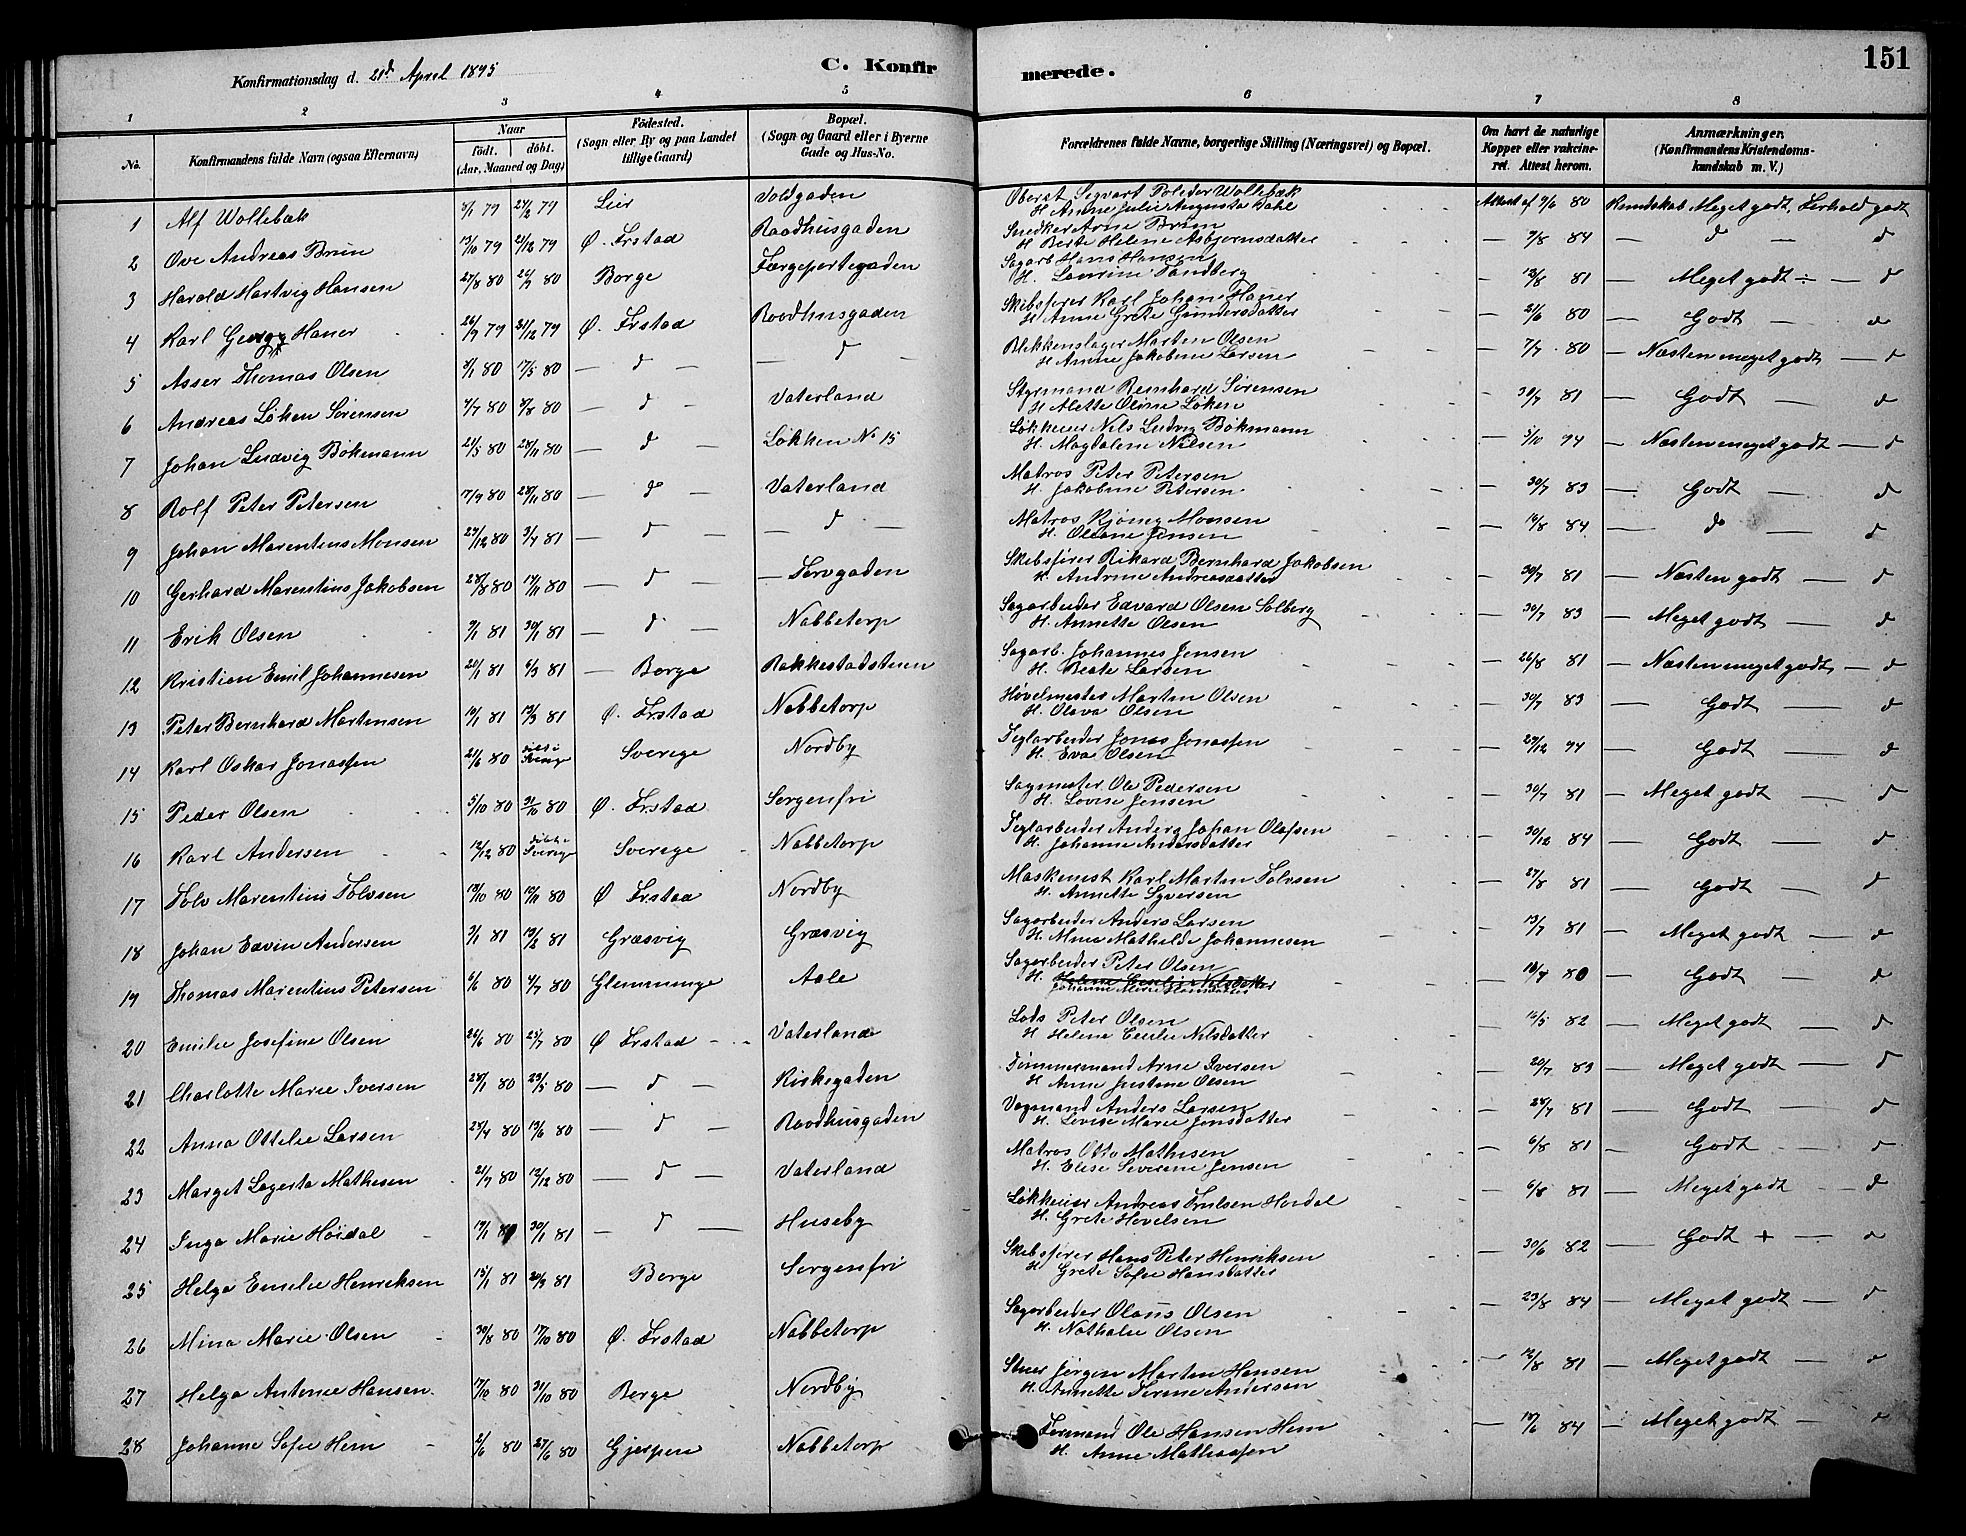 151
Konfirmationsdag d. 21d April 1895
C. Konfirmerede.
1 2 3 4 5 6 7 8
No.
Konfirmandens fulde Navn (ogsaa Efternavn)
Naar
födt. döbt.
(Aar, Maaned og Dag)
Födested.
(Sogn eller By og paa Landet
tillige Gaard)
Bopæl.
(Sogn og Gaard eller i Byerne
Gade og Hus-No.
Forældrenes fulde Navne, borgerlige Stilling (Næringsvei) og Bopæl.
Om havt de naturlige
Kopper eller vakcine-
ret. Attest herom.
Anmærkninger.
(Konfirmandens Kristendoms-
kundskab m. V.)
1 Alf Wollebæk 79 27/2 79 Lier Voldgaden Oberst Segvart Wollebæk
H. Anne Julie Augusta Dahl Attest af 9/6 80 Kundskab Meget godt, Forhold godt
2 Ove Andreas Brun 13/10 79 21/12 79 Ø. Frstad Raadhusgaden Snedker Arne Brun
H. Berte Helene Asbjørnsdatter — 9/8 84 — d — d
3 Harald Hartvig Hansen 80 80 Borge Færgeportegaden Sagarb Hans Hansen
H. Laurine Tandberg — 13/8 81 — Meget godt — d
4 Karl Georg Hauer 26/9 79 21/12 79 Ø. Frstad Raadhusgaden Skibsfører Karl Johan Hauer
H. Anne Grete Gundersdatter — 21/6 80 — Godt — d
5 Asser Thomas Olsen 80 17/5 80 — d — d — Blikkenslager Marten Olsen
H. Anne Jakobine Larsen — 7/7 80 — Næsten meget godt — d
6 Andreas Løken Sørensen 80 80 — d — Vaterland Styrmand Reinhard Sørensen
H. Alette Oline Løken — 30/7 81 — Godt — d
7 Johan Ludvig Bökmann 21/5 80 28/11 80 — d — Løkken No 15 Løkkeeier Nils Ludvig Bökmann
H. Magdalene Nilsen — 5/10 94 — Næsten meget godt — d
8 Rolf Peter Petersen 7/9 80 28/11 80 — d — Vaterland Matros Peter Petersen
H. Jakobine Petersen — 30/7 83 — Godt — d
9 Johan Marentius Monsen 29/12 80 3/4 81 — d — d — Matros Monsen
H. Oliane Jensen — 16/8 84 — d — d
10 Gerhard Marentius Jakobsen 28/8 80 80 — d — Torvgaden Skibsfører Rikard Bernhard Jakobsen
H. Andrine Andreasdatter — 30/7 81 — Næsten godt — d
11 Erik Olsen 81 30/1 81 — d — Nabbetorp Sagarbeider Edvard Olsen Solberg
H. Annette Olsen — 30/7 83 — Meget godt — d
12 Kristian Emil Johannesen 81 6/3 81 — Borge Rakkestadstuen Sagarb. Johannes Jensen
H. Beate Larsen — 26/8 81 — Næsten meget godt — d
13 Peter Bernhard Martinsen 81 13/3 81 Ø. Frstad Nabbetorp Høvelmester Martin Olsen
H. Olava Olsen — 30/7 83 — Godt — d
14 Karl Oskar Jonassen 21/6 80 Sverige Sverige Nordby Teglarbeider Jonas Jonassen
H. Eva Olsen — 29/12 94 — Godt — d
15 Peder Olsen 5/10 80 31/10 80 Ø. Frstad Sorgenfri Sagmester Ole Pedersen
H. Lovise Jensen — 30/7 81 — Meget godt — d
16 Karl Andersen 12/12 80 Sverige Sverige Nabbetorp Teglarbeider Anders Johan Olafsen
H. Johanne Andersdatter — 30/12 84 — Godt — d
17 Tolv Marentius Tolvsen 80 80 Ø Frstad Nordby Maskinist Karl Martin Tolvsen
H. Annette Syversen — 27/8 81 — Godt — d
18 Johan Edvin Andersen 81 13/2 81 Græsvig Græsvig Sagarbeider Anders Larsen
H. Mina Mathilde Johannesen — 13/7 81 — Meget godt — d
19 Thomas Marentius Petersen 6/6 80 4/7 80 Glemminge Aale Sagarbeider Peter Olsen
H. Helene Cecilie Nilsdatter
Johanne Marie Hansdatter — 80 — Godt — d
20 Emilie Josefine Olsen 80 25/7 80 Ø Frstad Vaterland Lods Peter Olsen
H Helene Cecilie Nilsdatter — 16/5 82 — Meget godt — d
21 Charlotte Marie Iversen 28/1 80 23/5 80 — d — Kirkegaden Tømmermand Arne Iversen
H Anne Justine Olsen — 20/7 83 — Meget godt — d
22 Anna Ottilie Larsen 25/4 80 13/6 80 — d — Raadhusgaden Vognmand Anders Larsen
H. Lovise Marie Jonsdatter — 81 — Godt — d
23 Marget Lagerta Mathisen 80 12/12 80 — d — Vaterland Matros Otto Mathisen
H. Elise Severine Jensen — 6/8 81 — Godt — d
24 Inga Marie Höidal 81 30/1 81 — d — Huseby Løkkeeier Andreas Trulsen Høidal
H. Grete Hovelsen — 6/8 81 — Meget godt — d
25 Helga Emilie Henriksen 15/1 81 20/3 81 Borge Sorgenfri Skibsfører Hans Peter Henriksen
H Grete Sofie Hansdatter — 30/6 82 — Godt + — d
26 Mina Marie Olsen 30/8 80 17/10 80 Ø. Frstad Nabbetorp Sagarbeider Olaus Olsen
H. Nathalie Olsen — 23/8 84 — Meget godt — d
27 Helga Antonie Hansen 80 31/10 80 Borge Nordby Stuer Jørgen Marten Hansen
H. Annette Andersen — 12/8 81 — Meget godt — d
28 Johanne Sofie Hem 80 27/6 80 Gjerpen Nabbetorp Formand Ole Hansen Hem
H. Anne Mathiassen — 84 — Meget godt — d